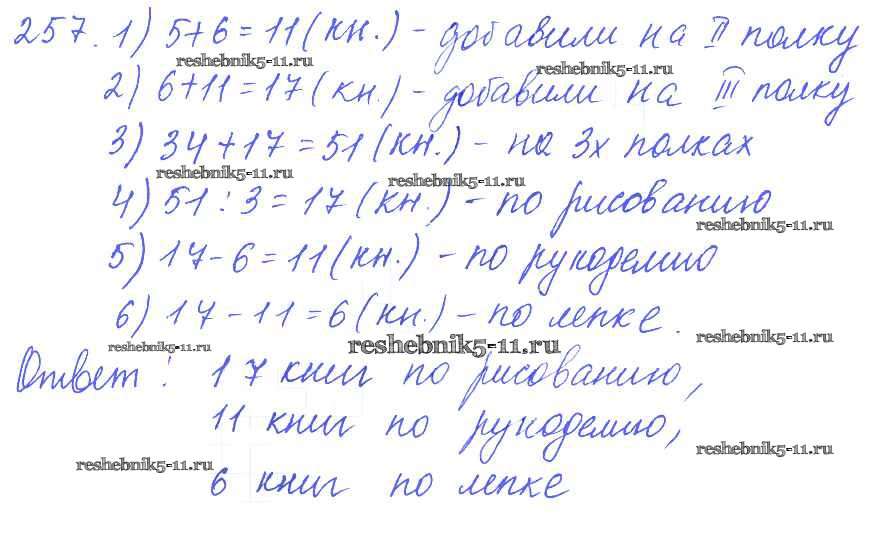 257. 1) 5+6=11(кн.) - добавили на II полку
reshebnik5-11.ru reshebnik5-11.ru
2) 6+11=17(кн.) - добавили на III полку
3) 34+17=51(кн.) - на 3х полках
reshebnik5-11.ru reshebnik5-11.ru
4) 51:3=17(кн.) - по рисованию
reshebnik5-11.ru
5) 17-6=11(кн.) - по рукоделию
6) 17-11=6(кн.) - по лепке.
reshebnik5-11.ru reshebnik5-11.ru reshebnik5-11.ru
Ответ: 17 книг по рисованию,
11 книг по рукоделию,
reshebnik5-11.ru reshebnik5-11.ru
6 книг по лепке